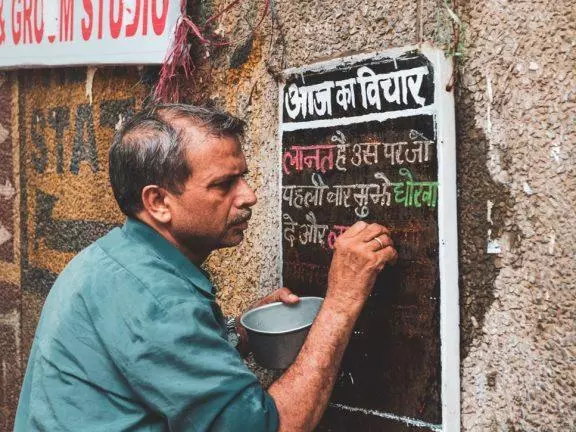 & GROOM STUDIO
STATE
आज का विचार
लानत है उस पर जो
पहली बार मुझे धोखा
दे और